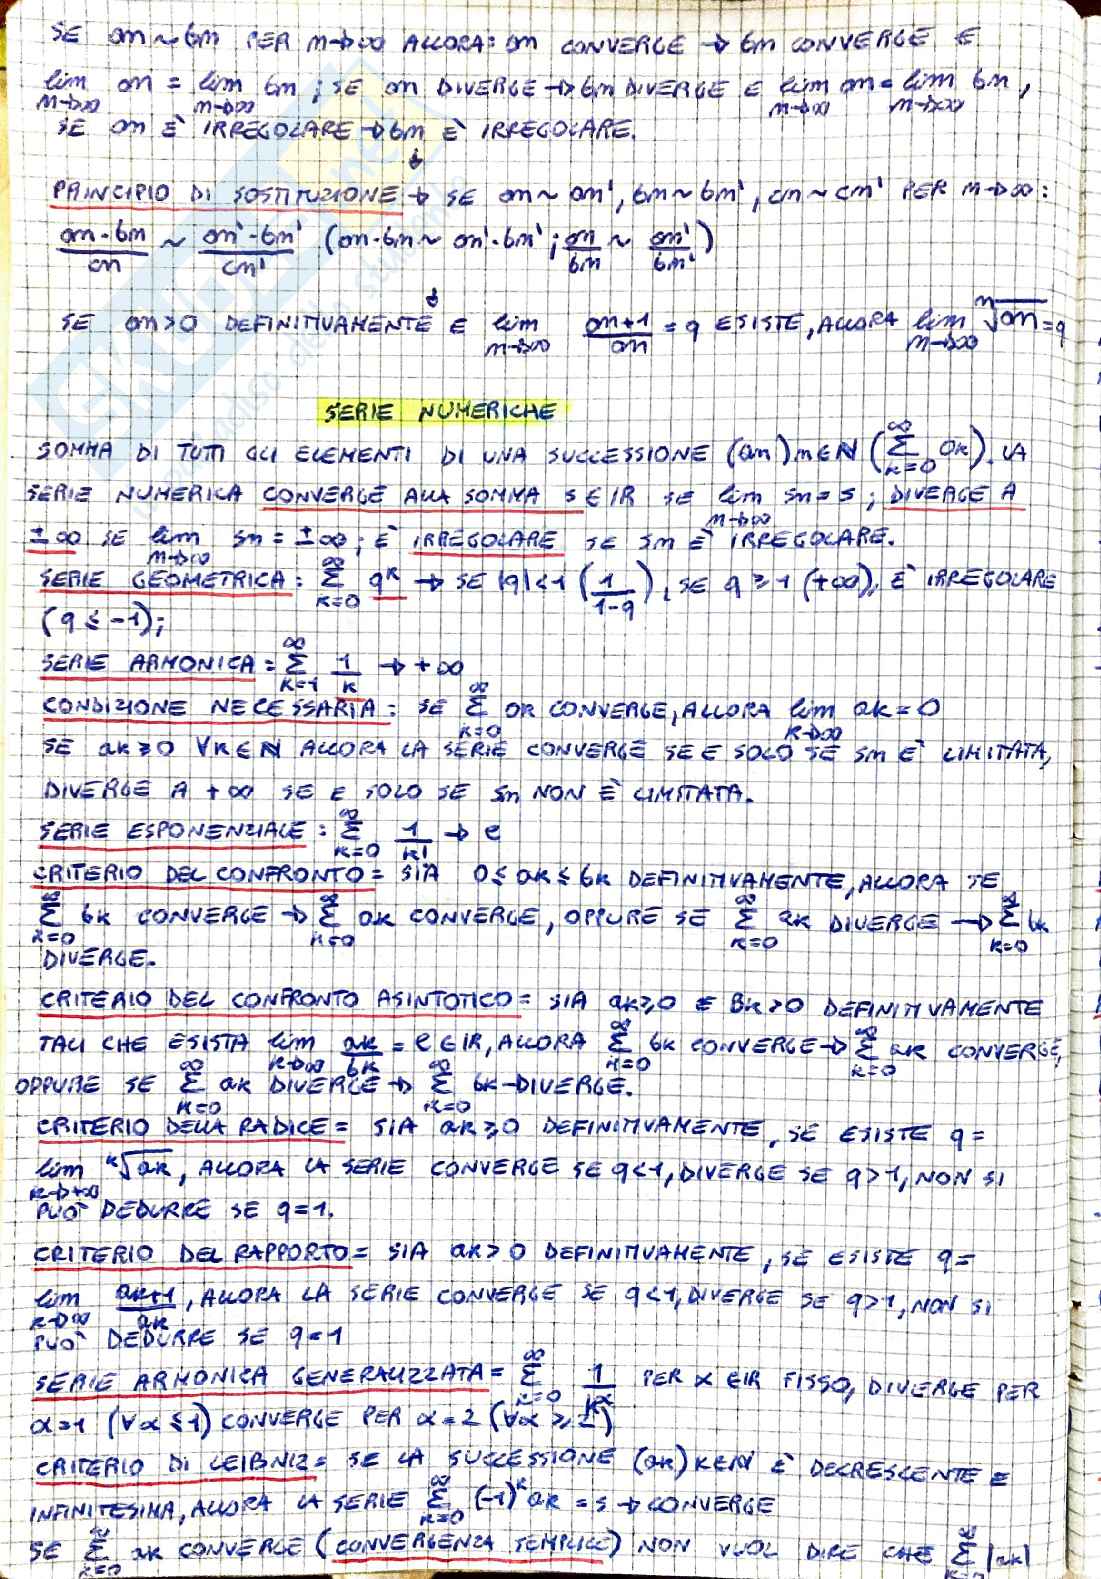 SE an ~ bn PER n→∞ ALLORA: an CONVERGE → bn CONVERGE E
lim n→∞ an = lim n→∞ bn ; SE an DIVERGE → bn DIVERGE E lim n→∞ an = lim n→∞ bn ,
SE an È IRREGOLARE → bn È IRREGOLARE.
↓
PRINCIPIO DI SOSTITUZIONE → SE an ~ an' , bn ~ bn' , cn ~ cn' PER n→∞ :
an·bn/cn ~ an'·bn'/cn' (an·bn ~ an'·bn' ; an/bn ~ an'/bn')
↓
SE an>0 DEFINITIVAMENTE E lim n→∞ an+1/an = q ESISTE, ALLORA lim n→∞ ⁿ√an = q
SERIE NUMERICHE
SOMMA DI TUTTI GLI ELEMENTI DI UNA SUCCESSIONE (an)n∈N (∑ k=0 ∞ ak). LA
SERIE NUMERICA CONVERGE ALLA SOMMA S∈IR SE lim n→∞ sn = s ; DIVERGE A
±∞ SE lim n→∞ sn = ±∞ ; È IRREGOLARE SE sn È IRREGOLARE.
SERIE GEOMETRICA : ∑ k=0 ∞ q^k → SE |q|<1 (1/1-q), SE q ≥ 1 (+∞), È IRREGOLARE
(q ≤ -1);
SERIE ARMONICA = ∑ k=1 ∞ 1/k → +∞
CONDIZIONE NECESSARIA : SE ∑ k=0 ∞ ak CONVERGE, ALLORA lim k→∞ ak = 0
SE ak≥0 ∀k∈N ALLORA LA SERIE CONVERGE SE E SOLO SE sn È LIMITATA,
DIVERGE A +∞ SE E SOLO SE sn NON È LIMITATA.
SERIE ESPONENZIALE : ∑ k=0 ∞ 1/k! → e
CRITERIO DEL CONFRONTO = SIA 0 ≤ ak ≤ bk DEFINITIVAMENTE, ALLORA SE
∑ k=0 ∞ bk CONVERGE → ∑ k=0 ∞ ak CONVERGE, OPPURE SE ∑ k=0 ∞ ak DIVERGE → ∑ k=0 ∞ bk
DIVERGE.
CRITERIO DEL CONFRONTO ASINTOTICO = SIA ak≥0 E Bk>0 DEFINITIVAMENTE
TALI CHE ESISTA lim k→∞ ak/bk = ℓ∈IR, ALLORA ∑ k=0 ∞ bk CONVERGE → ∑ k=0 ∞ ak CONVERGE,
OPPURE SE ∑ k=0 ∞ ak DIVERGE → ∑ k=0 ∞ bk DIVERGE.
CRITERIO DELLA RADICE = SIA ak≥0 DEFINITIVAMENTE, SE ESISTE q =
lim k→+∞ ᵏ√ak, ALLORA LA SERIE CONVERGE SE q<1, DIVERGE SE q>1, NON SI
PUÒ DEDURRE SE q=1.
CRITERIO DEL RAPPORTO = SIA ak>0 DEFINITIVAMENTE, SE ESISTE q =
lim k→∞ ak+1/ak, ALLORA LA SERIE CONVERGE SE q<1, DIVERGE SE q>1, NON SI
PUÒ DEDURRE SE q=1
SERIE ARMONICA GENERALIZZATA = ∑ k=0 ∞ 1/k^α PER α∈IR FISSO, DIVERGE PER
α=1 (∀α≤1) CONVERGE PER α=2 (∀α≥2)
CRITERIO DI LEIBNIZ = SE LA SUCCESSIONE (ak)k∈N È DECRESCENTE E
INFINITESIMA, ALLORA LA SERIE ∑ k=0 ∞ (-1)^k ak = s → CONVERGE
SE ∑ k=0 ∞ ak CONVERGE (CONVERGENZA SEMPLICE) NON VUOL DIRE CHE ∑ k=0 ∞ |ak|